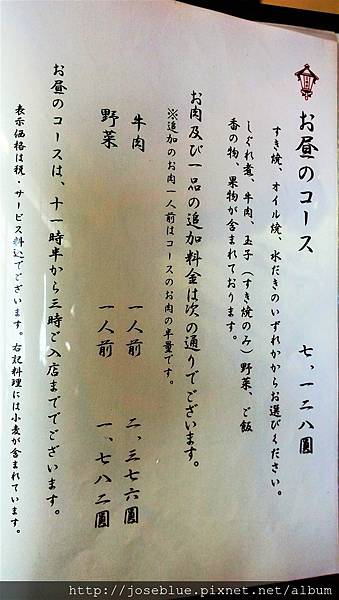 お昼のコース　七、一二八圓
すき焼、オイル焼、水だきのいずれかからお選びください。
しぐれ煮、牛肉、玉子（すき焼のみ）野菜、ご飯
香の物、果物が含まれております。
お肉及び一品の追加料金は次の通りでございます。
※追加のお肉一人前はコースのお肉の半量です。
牛肉　一人前　二、三七六圓
野菜　一人前　一、七八二圓
お昼のコースは、十一時半から三時ご入店まででございます。
表示価格は税・サービス料込でございます。右記料理には小麦が含まれています。
http://joseblue.pixnet.net/album